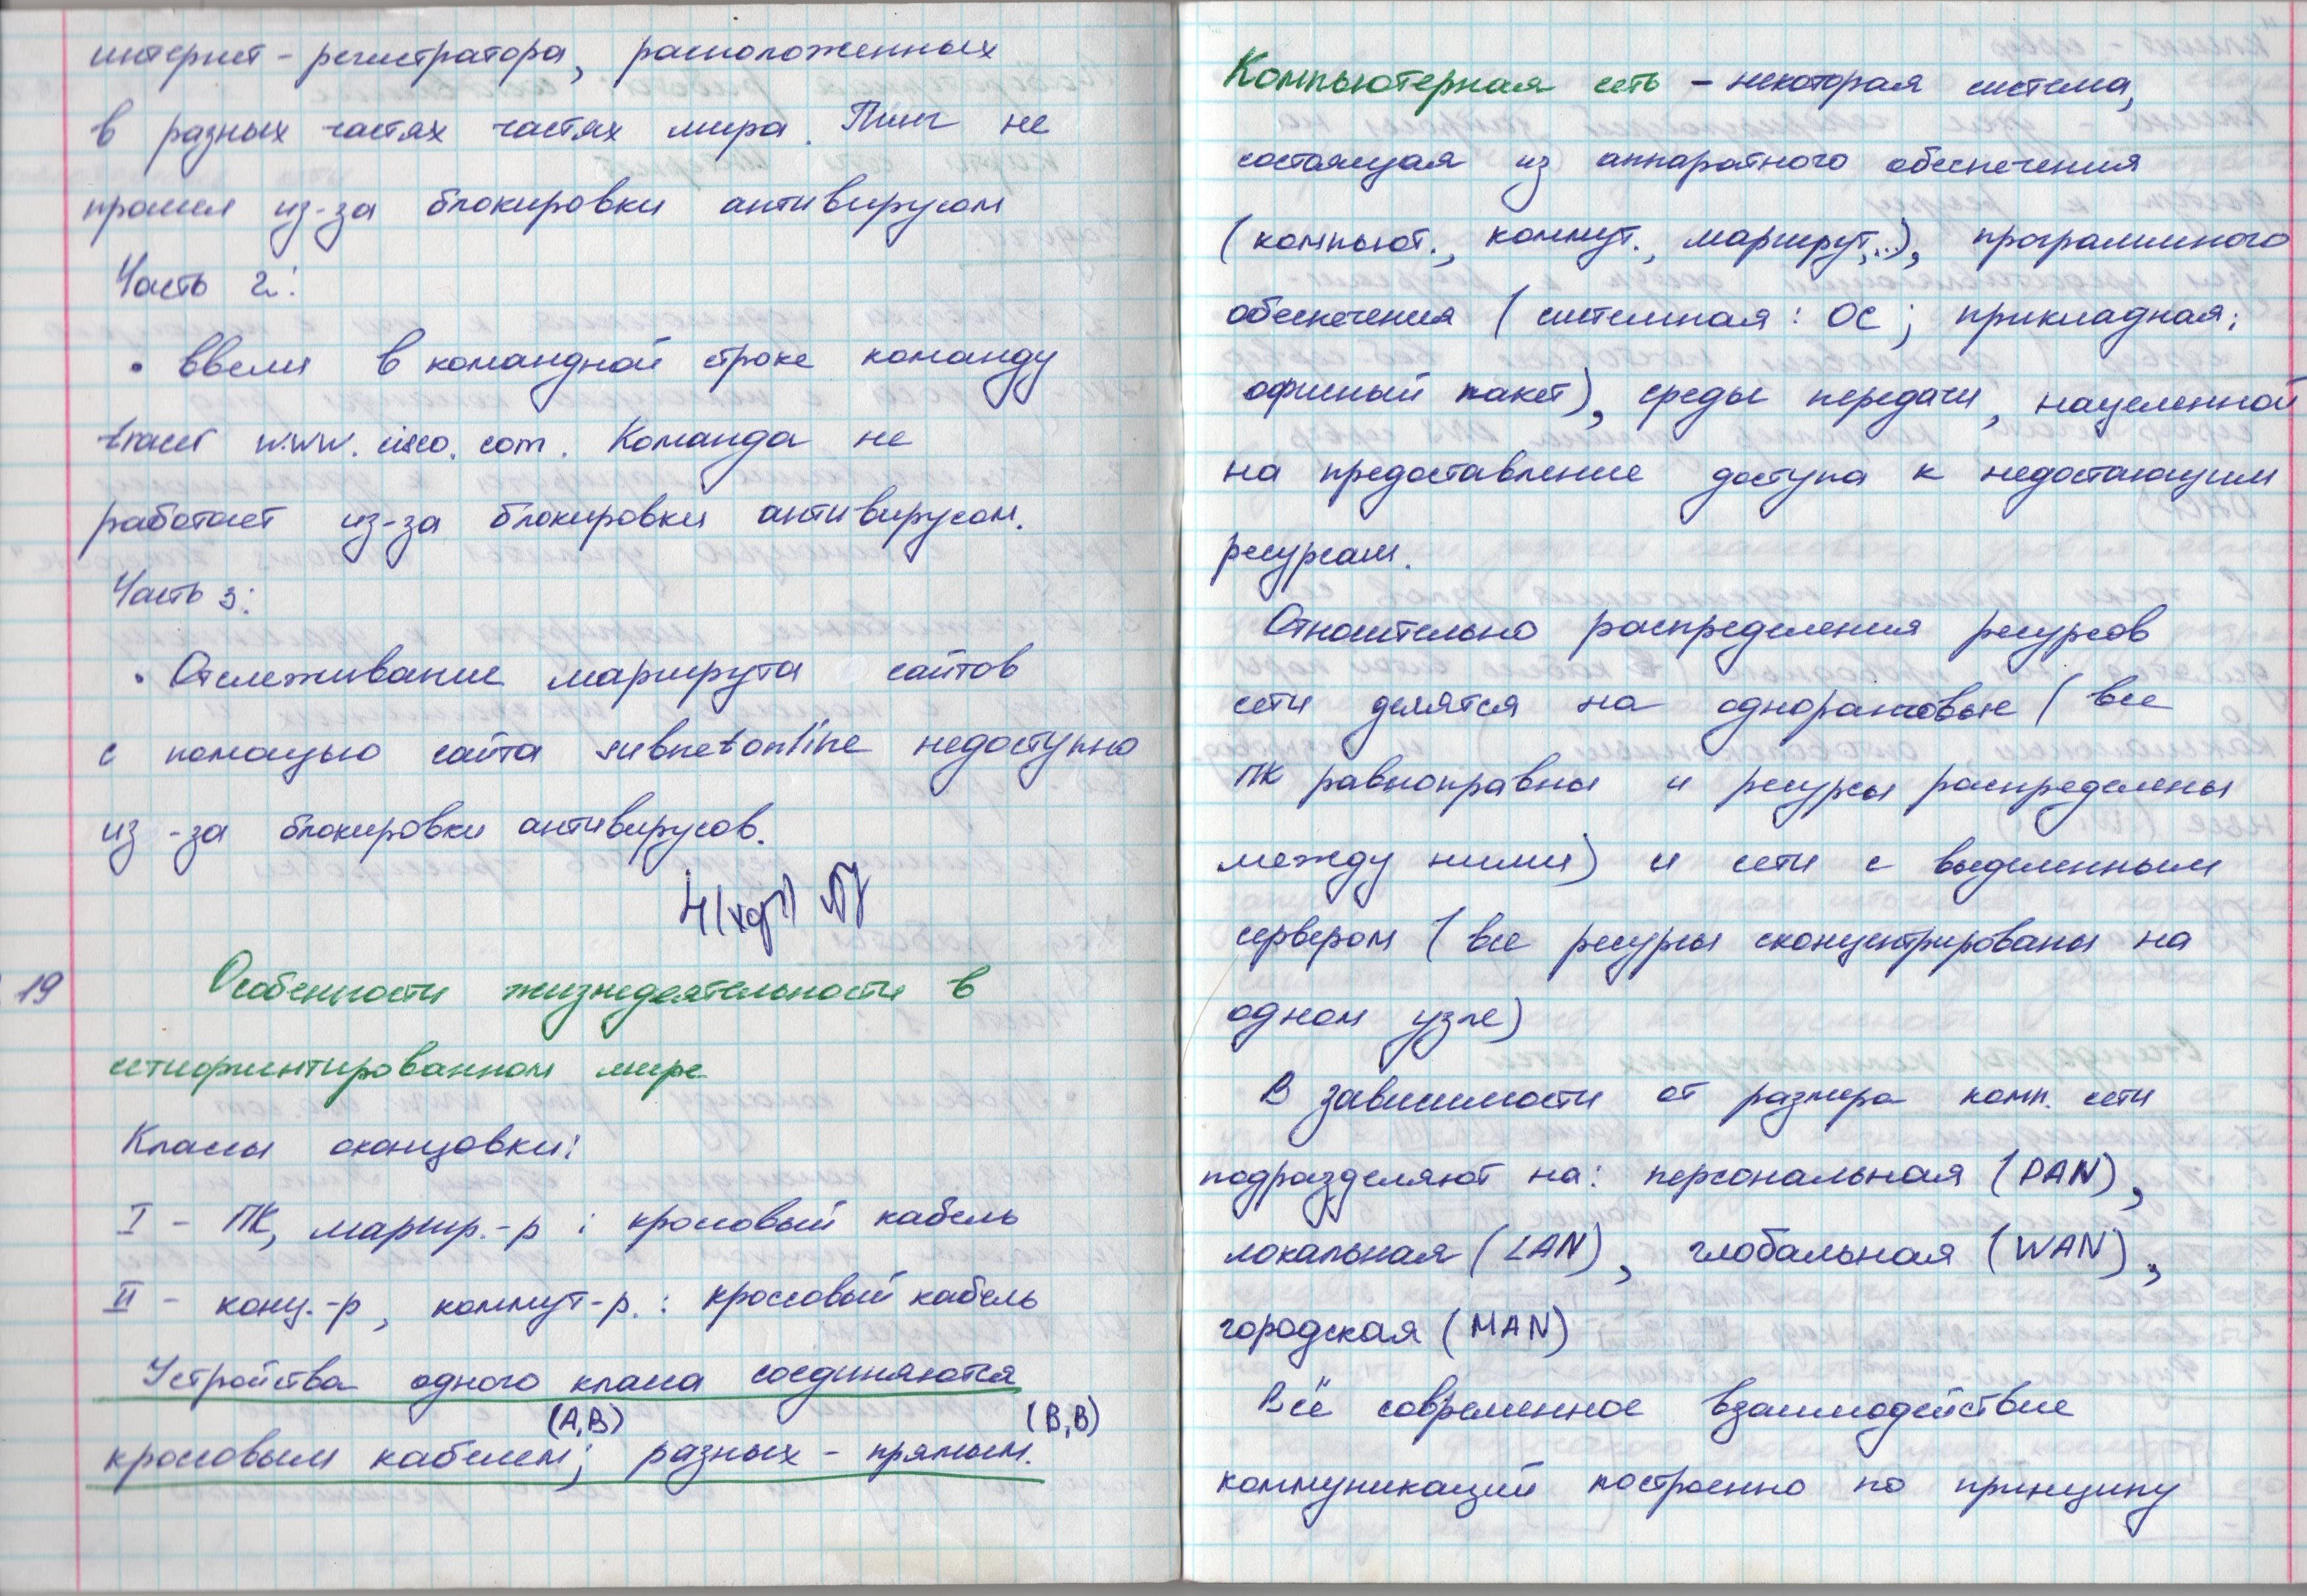 интернет - регистратора, расположенных
в разных частях частях мира. Пинг не
прошел из-за блокировки антивирусом
Часть 2:
• Ввели в командной строке команду
tracert www.cisco.com. Команда не
работает из-за блокировки антивирусом.
Часть 3:
• Отслеживание маршрута сайтов
с помощью сайта subnetonline недоступно
из-за блокировки антивирусов.
19 Особенности жизнедеятельности в
сетиориентированном мире
Классы оконцовки:
I - ПК, маршр.-р : кроссовый кабель
II - конц.-р, коммут-р. : кроссовый кабель
Устройства одного класса соединяются
(A,B) (B,B)
кроссовым кабелем; разных - прямым.
Компьютерная сеть - некоторая система,
состоящая из аппаратного обеспечения
(компьют., коммут., маршрут,..), программного
обеспечения (системная: ОС; прикладная:
офисный пакет), среды передачи, нацеленной
на предоставление доступа к недостающим
ресурсам.
Относительно распределения ресурсов
сети делятся на одноранговые (все
ПК равноправны и ресурсы распределены
между ними) и сети с выделенным
сервером (все ресурсы сконцентрированы на
одном узле)
В зависимости от размера комп. сети
подразделяют на: персональная (PAN),
локальная (LAN), глобальная (WAN),
городская (MAN)
Всё современное взаимодействие
коммуникаций построенно по принципу